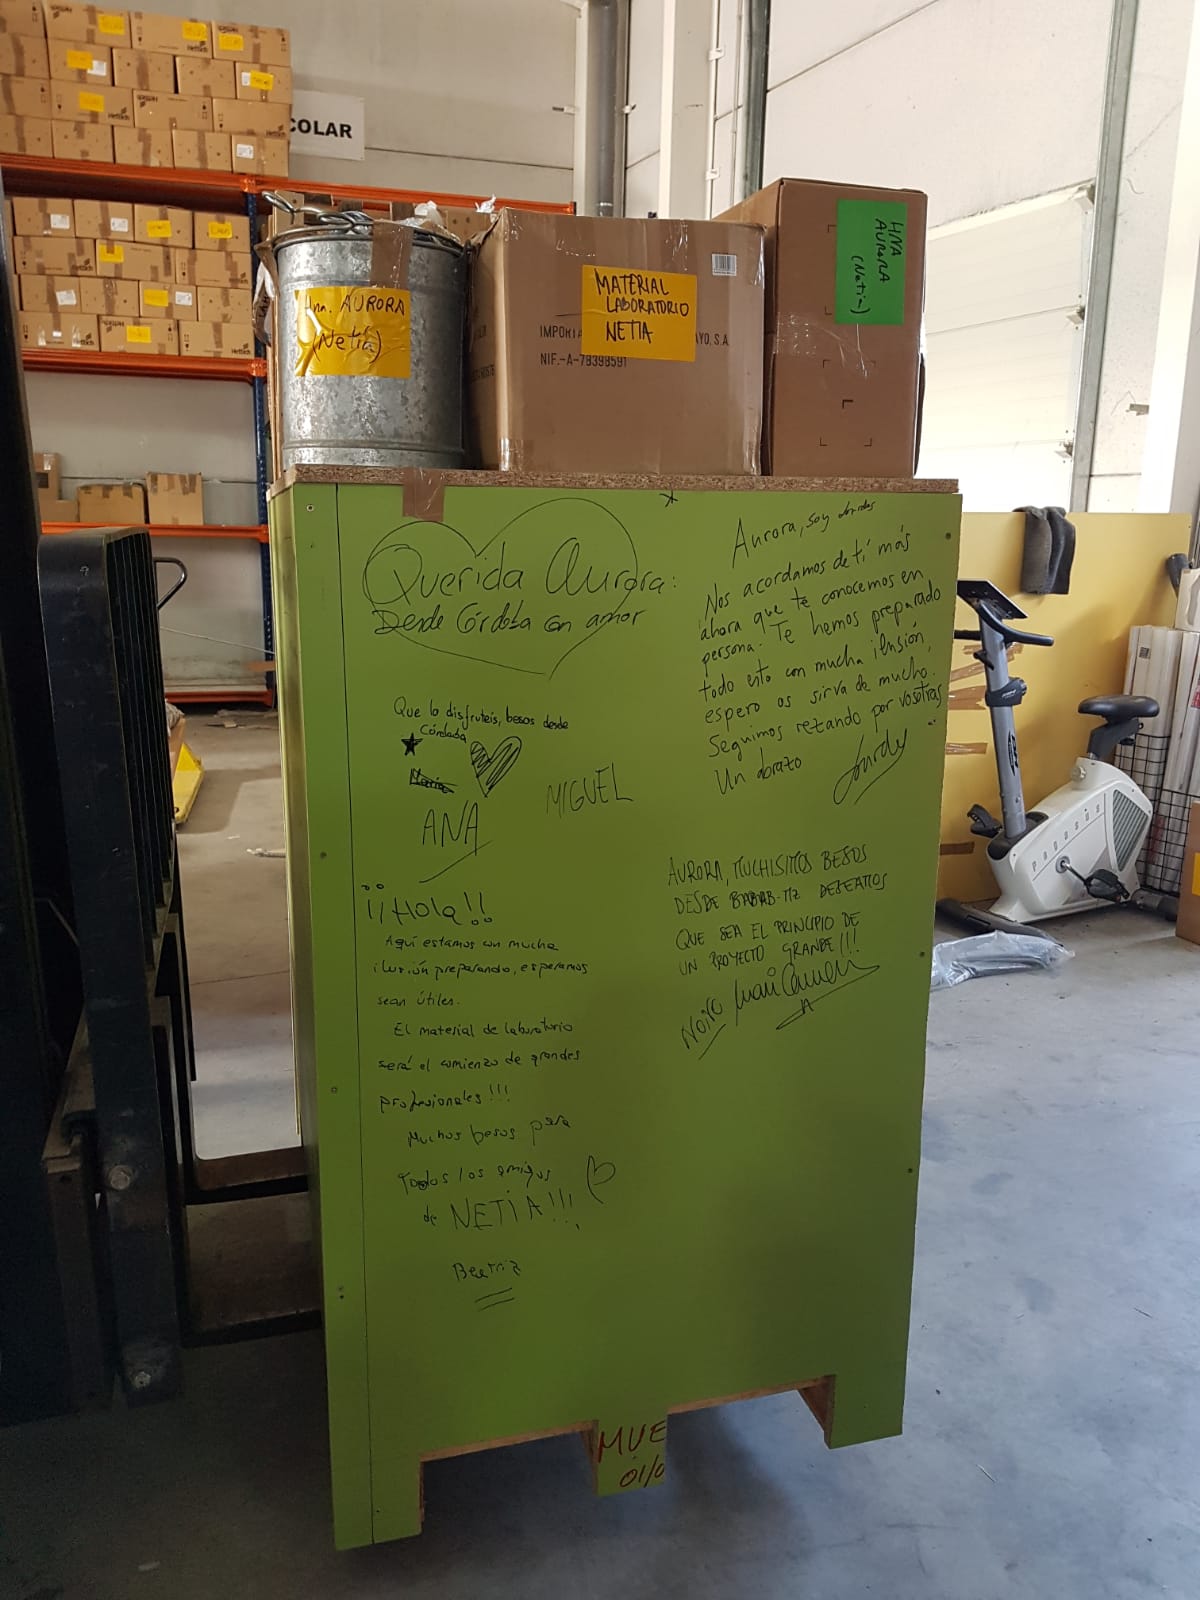 COLAR
Hna. AURORA
(Netia)
MATERIAL
LABORATORIO
NETIA
IMPORTA
YO, S.A.
NIF.-A-78398591
HNA
AURORA
(Netia)
Querida Aurora:
Desde Córdoba con amor
Que lo disfruteis, besos desde
Córdoba
María
ANA
MIGUEL
¡¡Hola!!
Aquí estamos con mucha
ilusión preparando, esperamos
sean útiles.
El material de laboratorio
será el comienzo de grandes
profesionales!!!
Muchos besos para
Todos los amigos
de NETIA!!!
Beatriz
Aurora, soy
Nos acordamos de tí más
ahora que te conocemos en
persona. Te hemos preparado
todo esto con mucha ilusión,
espero os sirva de mucho.
Seguimos rezando por vosotras
Un abrazo
AURORA, MUCHISIMOS BESOS
DESDE DESEAMOS
QUE SEA EL PRINCIPIO DE
UN PROYECTO GRANDE!!!
Mari Carmen
MUE
01/0
pegasus
Hettich